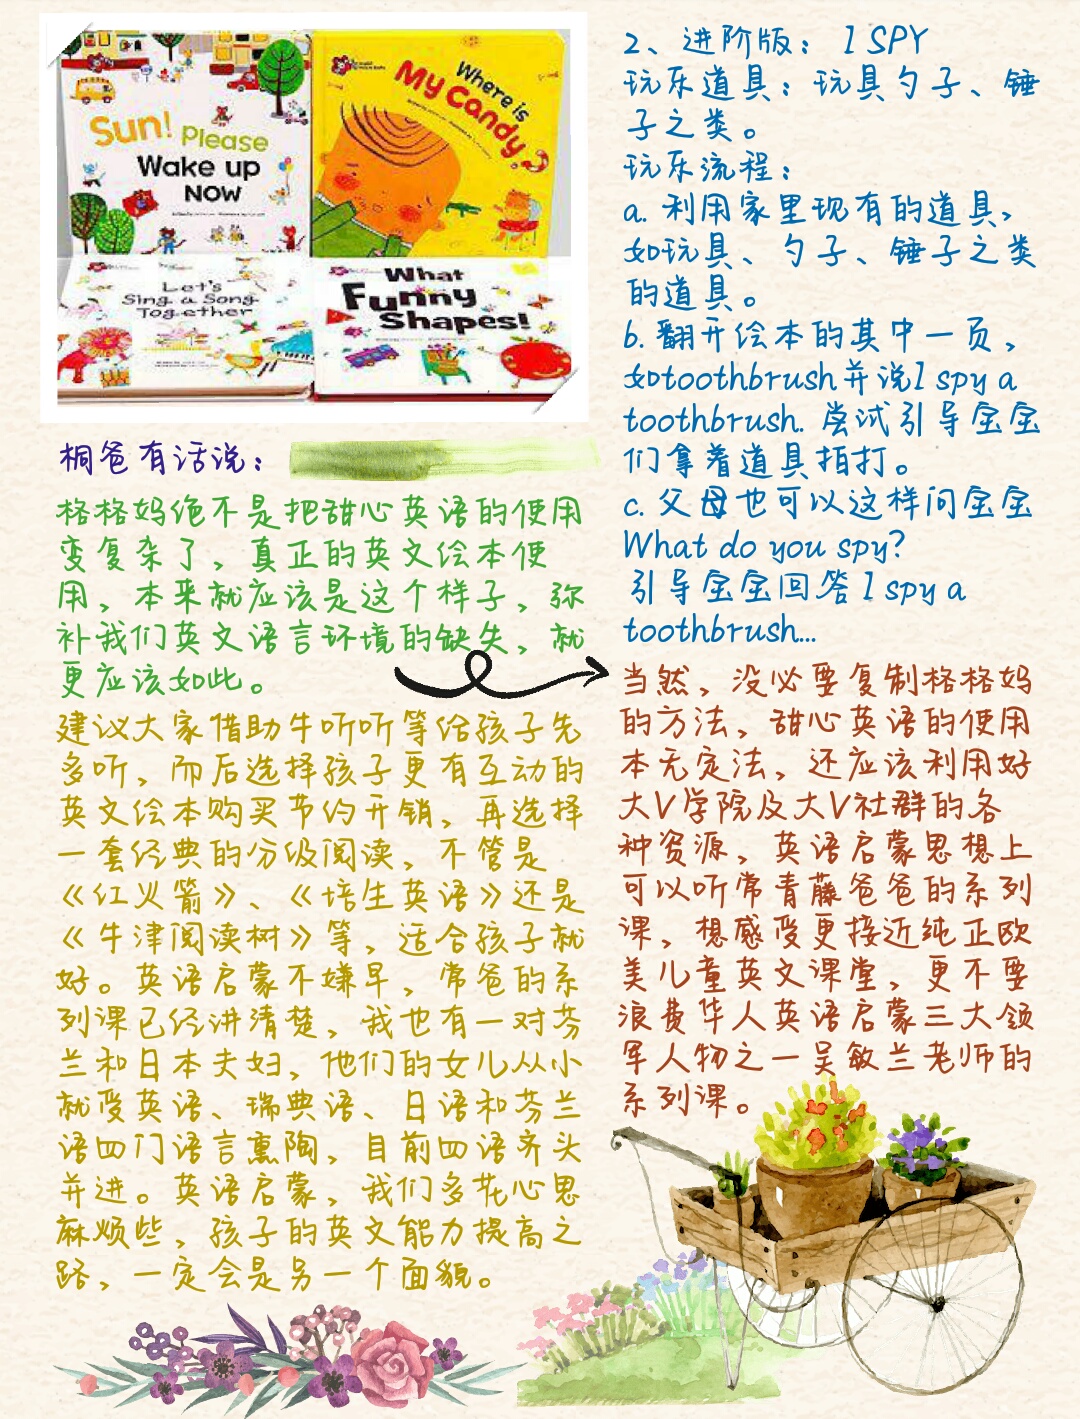 Sun! Please
Wake up
NOW
Where is
My Candy?
Let's
Sing a Song
Together
What
Funny
Shapes!
桐爸有话说：
格格妈绝不是把甜心英语的使用
变复杂了，真正的英文绘本使
用，本来就应该是这个样子，弥
补我们英文语言环境的缺失，就
更应该如此。
建议大家借助牛听听等给孩子先
多听，而后选择孩子更有互动的
英文绘本购买节约开销，再选择
一套经典的分级阅读，不管是
《红火箭》、《培生英语》还是
《牛津阅读树》等，适合孩子就
好。英语启蒙不嫌早，常爸的系
列课已经讲清楚，我也有一对芬
兰和日本夫妇，他们的女儿从小
就受英语、瑞典语、日语和芬兰
语四门语言熏陶，目前四语齐头
并进。英语启蒙，我们多花心思
麻烦些，孩子的英文能力提高之
路，一定会是另一个面貌。
2、进阶版：I SPY
玩乐道具：玩具勺子、锤
子之类。
玩乐流程：
a. 利用家里现有的道具，
如玩具、勺子、锤子之类
的道具。
b. 翻开绘本的其中一页，
如toothbrush并说I spy a
toothbrush. 尝试引导宝宝
们拿着道具拍打。
c. 父母也可以这样问宝宝
What do you spy?
引导宝宝回答I spy a
toothbrush...
当然，没必要复制格格妈
的方法，甜心英语的使用
本无定法，还应该利用好
大V学院及大V社群的各
种资源，英语启蒙思想上
可以听常青藤爸爸的系列
课，想感受更接近纯正欧
美儿童英文课堂，更不要
浪费华人英语启蒙三大领
军人物之一吴敏兰老师的
系列课。